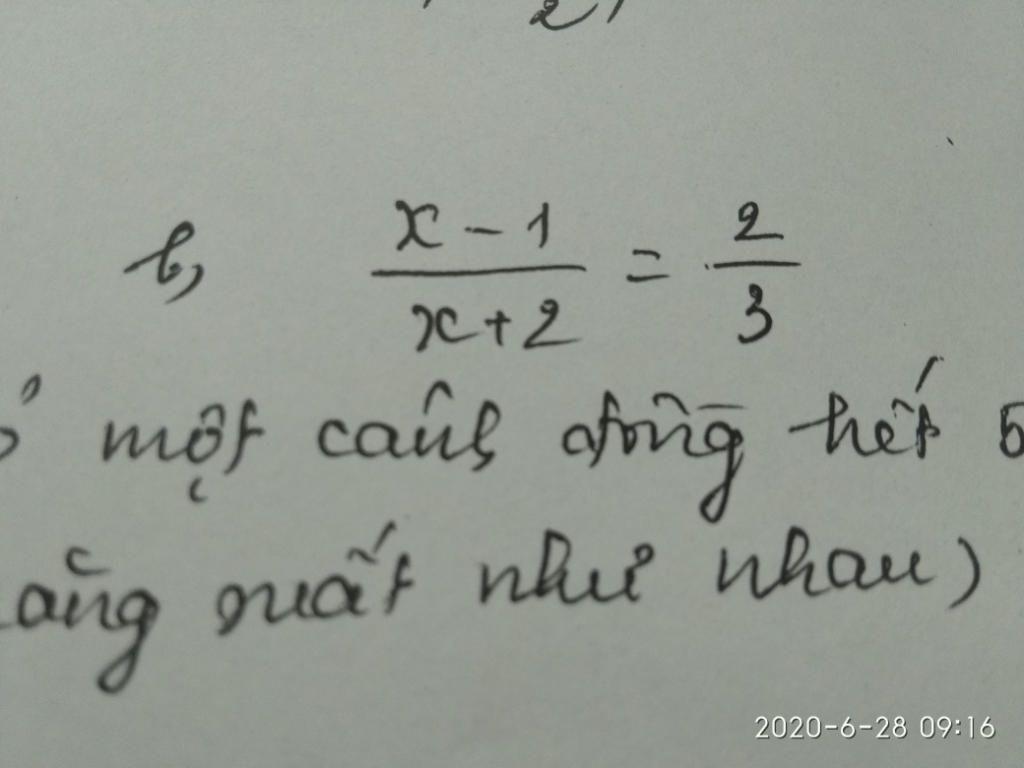 2)
b, x - 1 / x + 2 = 2 / 3
một cánh đồng hết 5
năng suất như nhau)
2020-6-28 09:16